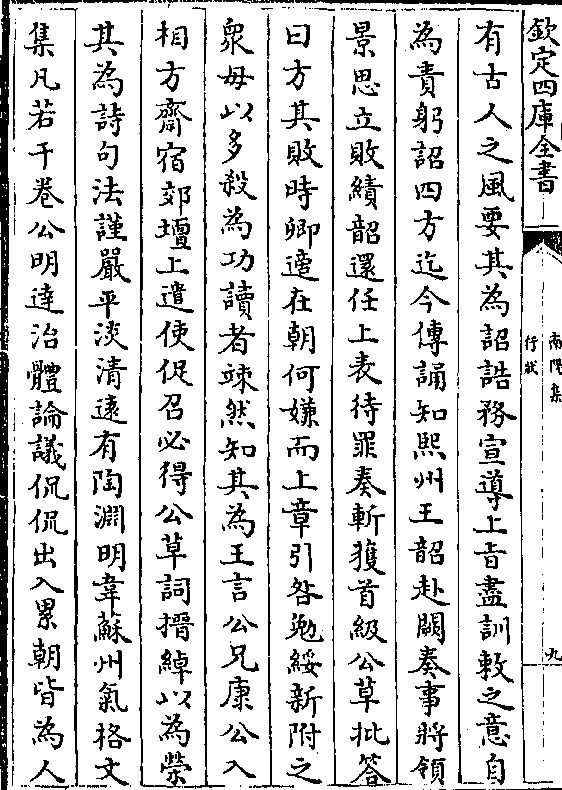 欽定四庫全書
南陽集
行狀
九
有古人之風要其為詔誥務宣導上旨盡訓敕之意自
為責躬詔四方迄今傳誦知熙州王韶赴闕奏事將領
景思立敗績韶還任上表待罪奏斬獲首級公草批答
曰方其敗時卿適在朝何嫌而上章引咎勉綏新附之
衆毋以多殺為功讀者竦然知其為王言公兄康公入
相方齋宿郊壇上遣使促召必得公草詞搢紳以為榮
其為詩句法謹嚴平淡清逺有陶淵明韋蘇州氣格文
集凡若干卷公明達治體論議侃侃出入累朝皆為人